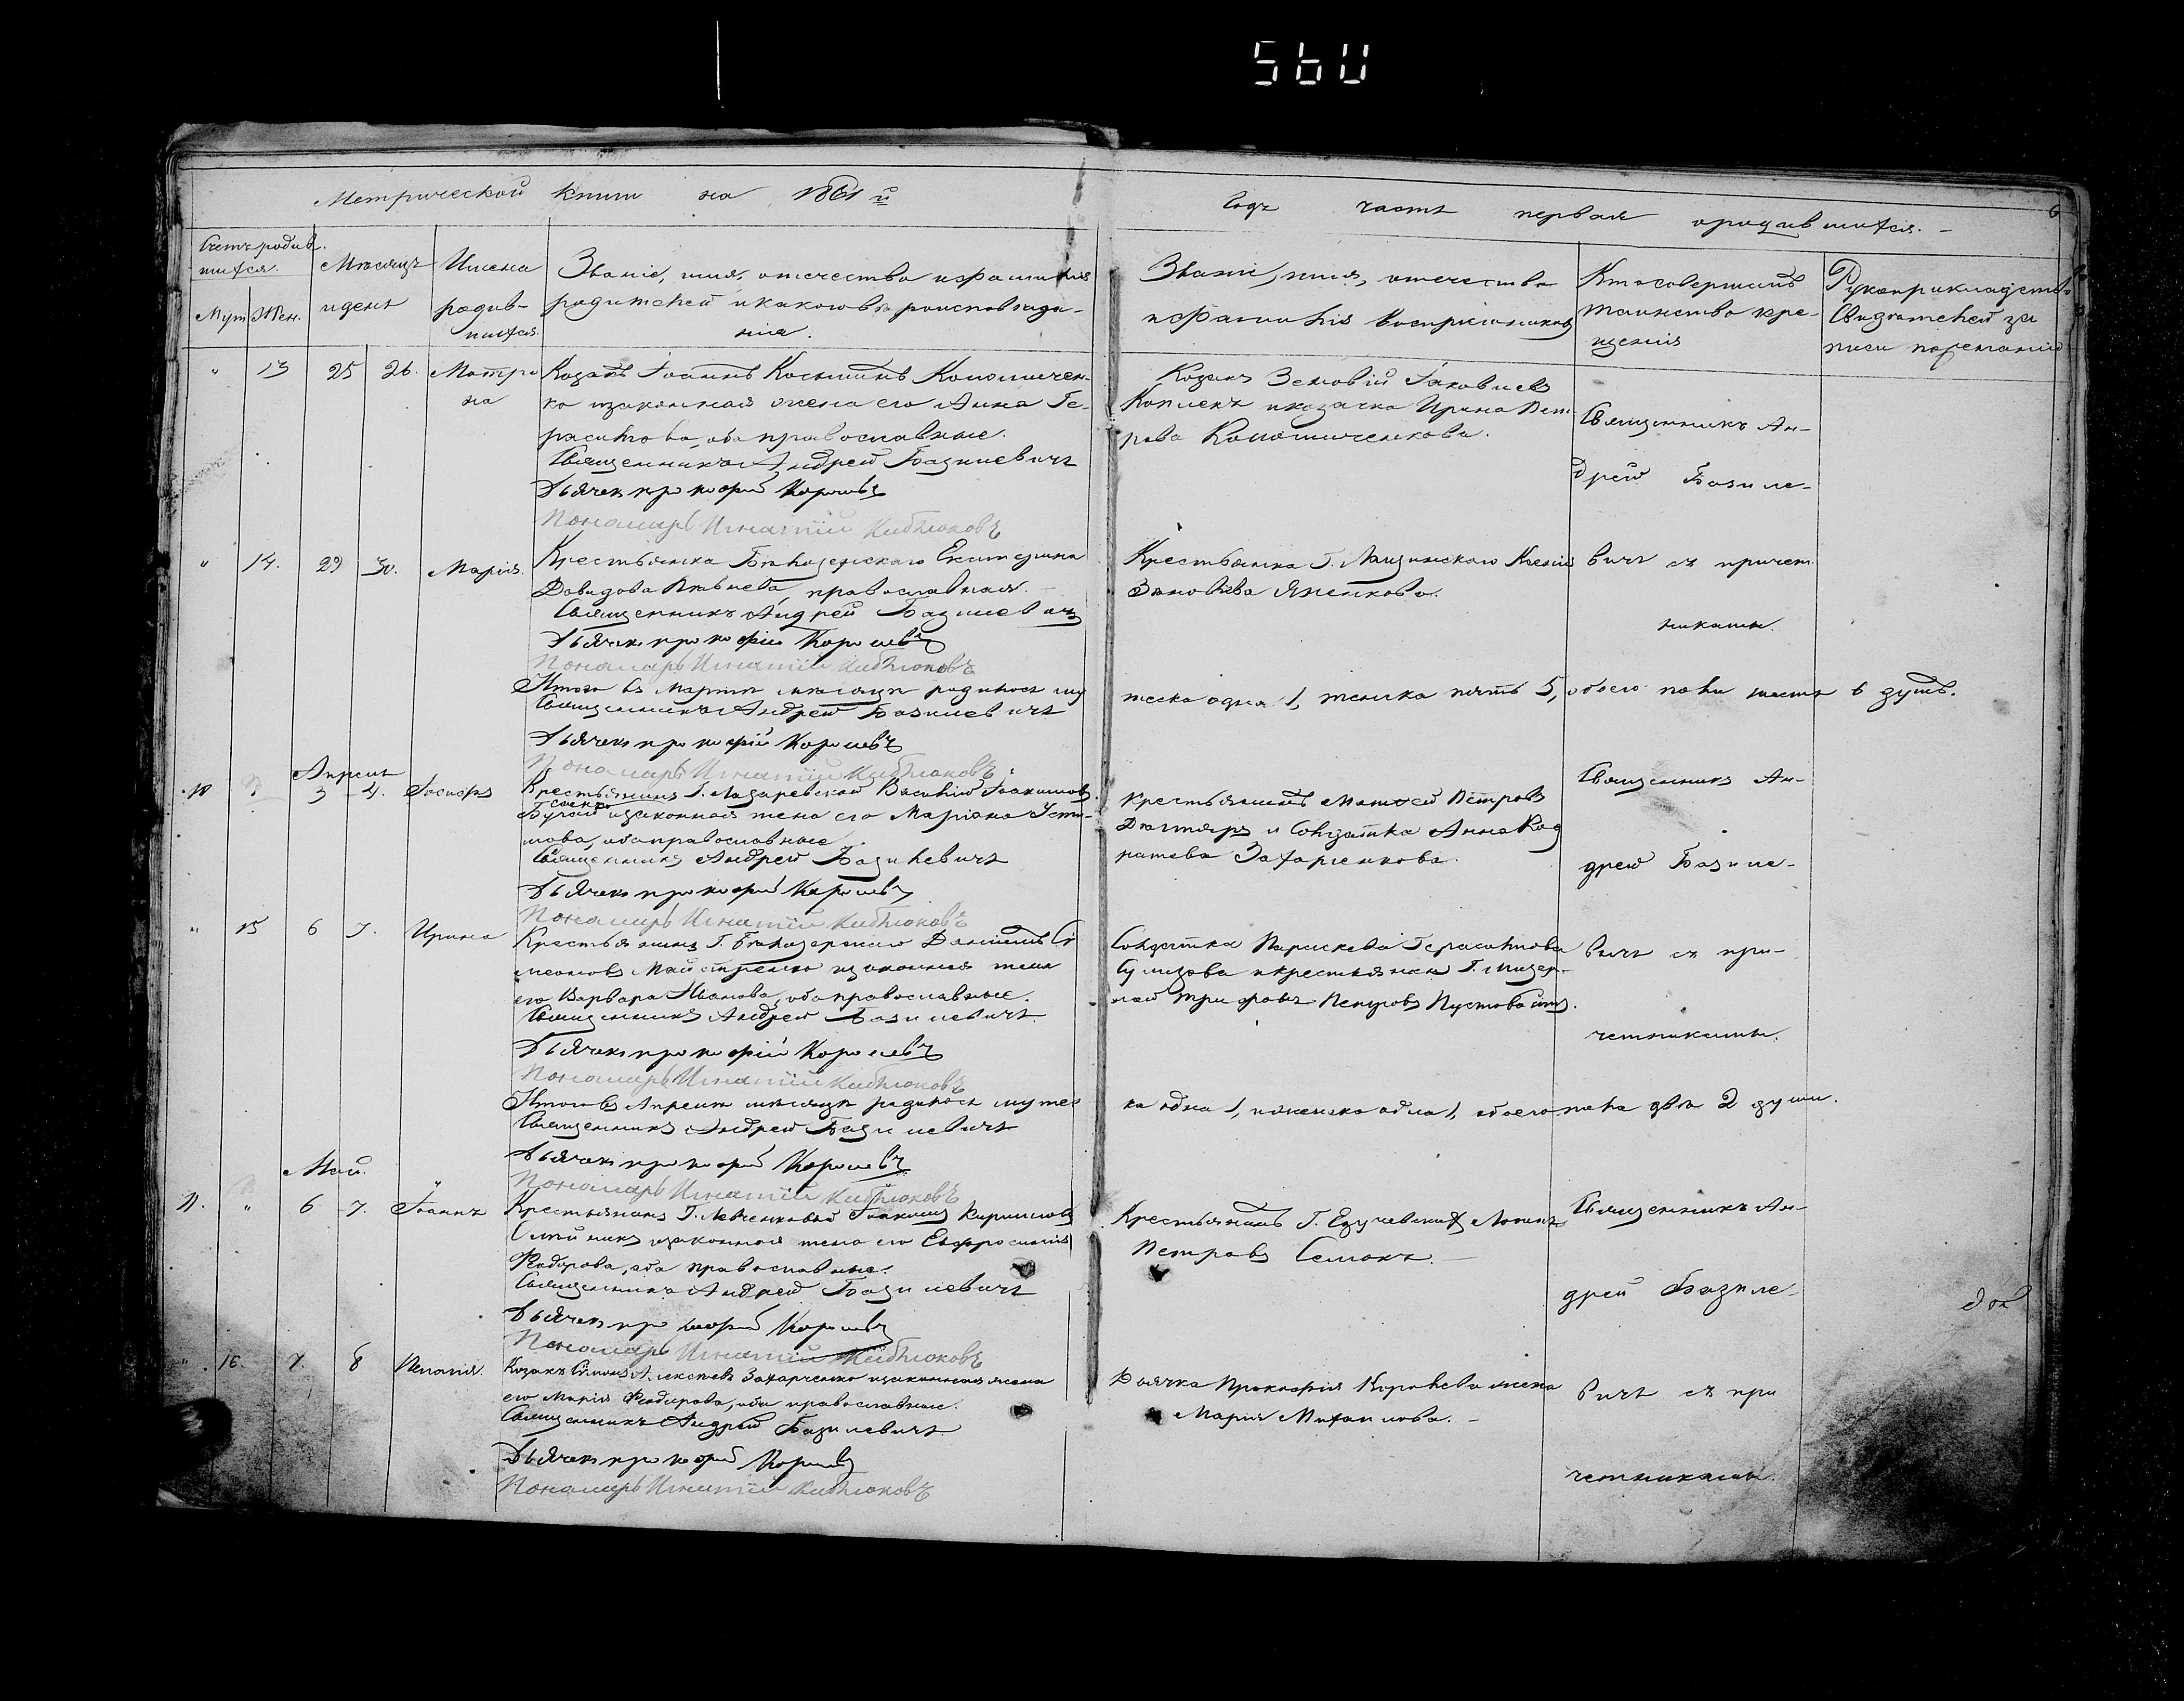 560
Метрической книги на 1861 й
Годъ часть первая о родившихся.
6
Счетъ родив-
шихся.
Муж Жен.
Мѣсяцъ
и день
Имена
родив-
шихся
Званіе, имя, отечество и фамилія
родителей и какого вѣроисповѣда-
нія.
Званіе, имя, отечество
и фамилія воспріемниковъ
Кто совершилъ
таинство кре-
щенія
Рукоприкладство
свидѣтелей за
писи по желанію
" 13 25 26. Матро
на
Козакъ Іоаннъ Косминъ Коломичен-
ко и законная жена его Анна Ге-
расимова, оба православные.
Священникъ Андрей Базилевичъ
Дьячекъ Прокофій Королевъ
Пономарь Игнатій
Козакъ Зеновій Іаковлевъ
и козачка Ирина Пет-
рова Коломиченкова.
Священникъ Ан-
дрей Базиле-
" 14. 29 30. Марія.
Крестьянка Бѣлозерского Екатерина
Давидова православная.
Священникъ Андрей Базилевичъ
Дьячекъ Прокофій Королевъ
Пономарь Игнатій
Крестьянка Г.
Зиновіева
вичъ съ причет
никами.
Итого въ Мартѣ мѣсяцѣ родилось му
жеска одна 1, женска пять 5, обоего пола шесть 6 душъ.
Священникъ Андрей Базилевичъ
Дьячекъ Прокофій Королевъ
Пономарь Игнатій
Апрель
10 " 3 4. Іосифъ
Крестьянинъ Г. Лазаревской Василій Іоакимовъ
и законная жена его Маріана Усти-
нова, оба православные.
Священникъ Андрей Базилевичъ
Дьячекъ Прокофій Королевъ
Пономарь Игнатій
Крестьянинъ Матѳей Петровъ
и Солдатка Анна Код
ратева Захарченкова.
Священникъ Ан-
дрей Базиле-
" 15 6 7. Ирина
Крестьянинъ Г. Бѣлозерского Даніилъ Си
меоновъ Майстренко и законная жена
его Варвара Иванова, оба православные.
Священникъ Андрей Базилевичъ
Дьячекъ Прокофій Королевъ
Пономарь Игнатій
Солдатка Параскева Герасимова
и крестьянинъ Г.
Трифонъ Петровъ
вичъ съ при-
четниками.
Итого въ Апрелѣ мѣсяцѣ родилось мужес
ка одна 1, и женска одна 1, обоего пола двѣ 2 души.
Священникъ Андрей Базилевичъ
Дьячекъ Прокофій Королевъ
Пономарь Игнатій
Май.
11. " 6 7. Іоаннъ
Крестьянинъ Г. Левченковой Іоакимъ Кирилловъ
и законная жена его Евфросинія
Федорова, оба православные.
Священникъ Андрей Базилевичъ
Дьячекъ Прокофій Королевъ
Пономарь Игнатій
Крестьянинъ Г.
Петровъ
Священникъ Ан-
дрей Базиле-
" 16. 7. 8 Пелагія.
Козакъ Симонъ Алексѣевъ Захарченко и законная жена
его Марія Федорова, оба православные.
Священникъ Андрей Базилевичъ
Дьячекъ Прокофій Королевъ
Пономарь Игнатій
Дьячка Прокофія Королева жена
Марія Михайлова.
вичъ съ при
четниками.